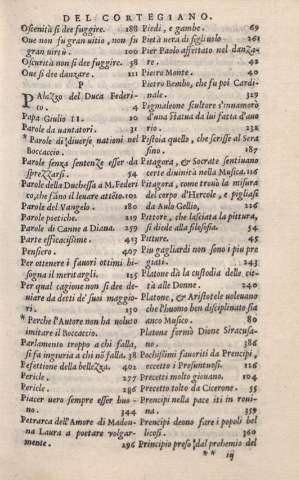 DEL CORTEGIANO.
Oscenità si dee fuggire. 188
One non fu gran uitio, non fu
gran uirtù. 100
Oscurità non si dee fuggire. 58
One si dee danzare. 111
P
Palazzo del Duca Federi-
co. 4
Papa Giulio II. 10
Parole da uantatori. 31
* Parole di diuerse nationi nel
Boccaccio.
Parole senza sentenze esser da
sprezzarsi. 54
Parole della Duchessa a M. Federi
co, che sano il leuare atteso. 102
Parole del Vangelo. 180
Parole poetiche. 219
Parole di Canne a Diana. 259
Parte efficacissime. 413
Pensiero. 407
Per ottenere i fauori ottimi bi-
sogna il meritargli. 125
Per qual cagione non si dee de-
uiare da detti de' suoi maggio-
ri. 130
* Perche l'Autore non ha uoluto
imitare il Boccaccio.
Parlamento troppo a chi falla,
si fa ingiuria a chi nō falla. 38
Pefettione della bellezza. 402
Pericle. 277
Pericle. 296
Piacer uero sempre esser buo-
no. 344
Petrarca dell'Amore di Madon-
na Laura a poetare volgar-
mente. 296
Piedi, e gambe. 69
Dietà uera di figliuolo 261
Pier Paolo affettato nel danza-
re. 42
Pietro Monte. 40
Pietro Bembo, che fu poi Cardi-
nale. 320
Pigmaleone scultore s'innamorò
d'una statua da lui fatta d'auo
rio. 232
Pistoia quello, che scrisse al Serra
sino. 187
Pitagora, & Socrate sentiuano
certe diuinità nella Musica. 116
Pitagora, come trouò la misura
del corpo d'Hercole, e pigliasi
da Aulo Gellio, 226
Pittore, che lasciata la pittura,
si diede alla filosofia. 54
Pitture. 45
Piu gagliardi non sono i piu pre
giati. 243
Platone dà la custodia delle cit-
tà alle Donne. 240
Platone, & Aristotele uoleuano
che l'huomo ben disciplinato sia
anco Musico. 80
Platone formò Dione Siracusa-
no. 386
Pochissimi fauoriti da Prencipi,
eccetto i Presuntuosi. 126
Precetti molto giouano. 104
Precetto tolto da Cicerone. 55
Prencipi nella pace iti in roui-
na. 359
Prencipi deono fare i popoli bel
licosi. 360
Principio preso dal prohemio del
** iij